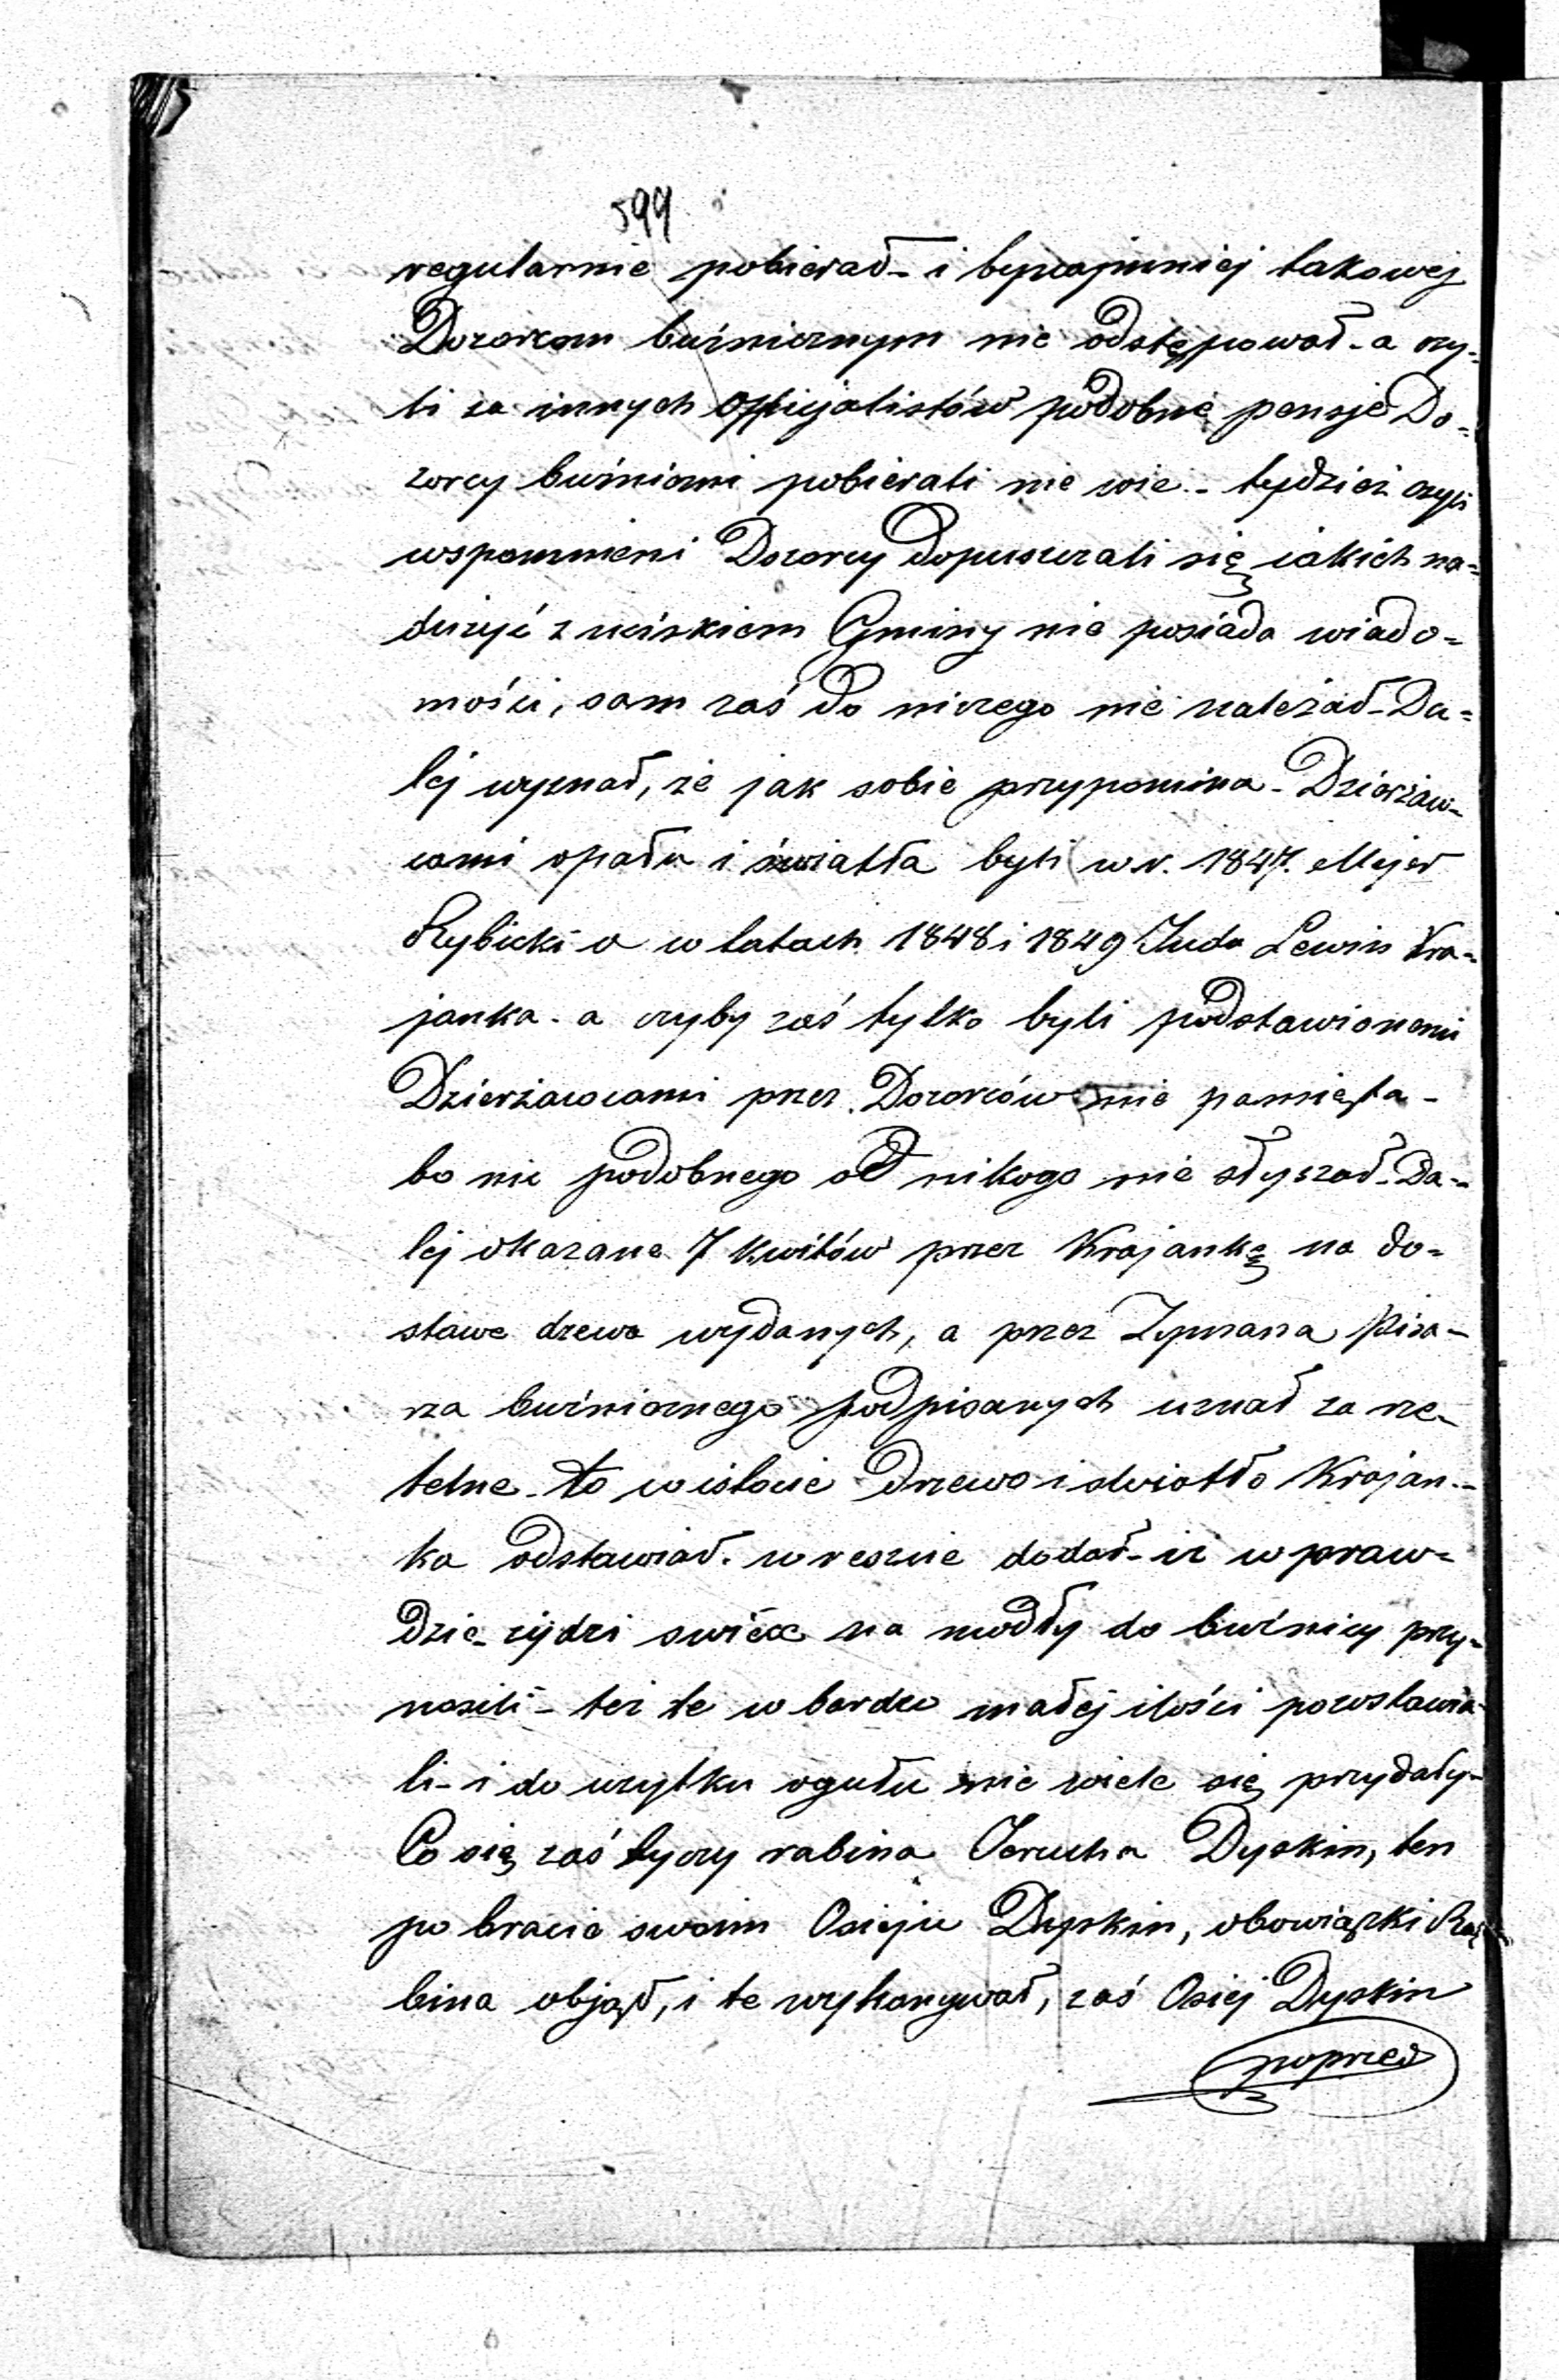 599
regularnie pobierał - i bynajmniej takowej
Dozorcom bużnicznym nie odstępował - a czy=
li za innych officjalistów podobnie pensje Do=
zorcy bużniczni pobierali nie wie - tydzież czyli
wspomnieni Dozorcy dopuszczali się jakich na=
dużyć z uciskiem Gminy nie posiada wiado=
mości, sam zaś do niczego nie należał - Da=
lej wyznał, że jak sobie przypomina - Dzierżaw-
cami opału i światła byli w r. 1847. Mejer
Rybicki a w latach 1848 i 1849 Juda Lewin Kra=
janka - a czyby zaś tylko byli podstawionemi
Dzierżawcami przez Dozorców nie pamięta -
bo nic podobnego od nikogo nie słyszał - Da=
lej okazane 7 kwitów przez Krajankę na do=
stawe drzewa wydanych, a przez Zymana Pisa-
rza bużnicznego podpisanych uznał za rze-
telne - to w istocie drzewo i swiatło Krajan-
ka odstawiał - w reszcie dodał - iż w praw=
dzie - żydzi swiéce na modły do bużnicy przy=
nosili - też te w bardzo małej ilości pozostawia
li - i do użytku ogułu nie wiele się przydały -
Co się zaś tyczy rabina Jerucha Dyskin, ten
po bracie swoim Osieju Dyskin, obowiązki Ra=
bina objął, i te wykonywał, zaś Osiej Dyskin
poprzed